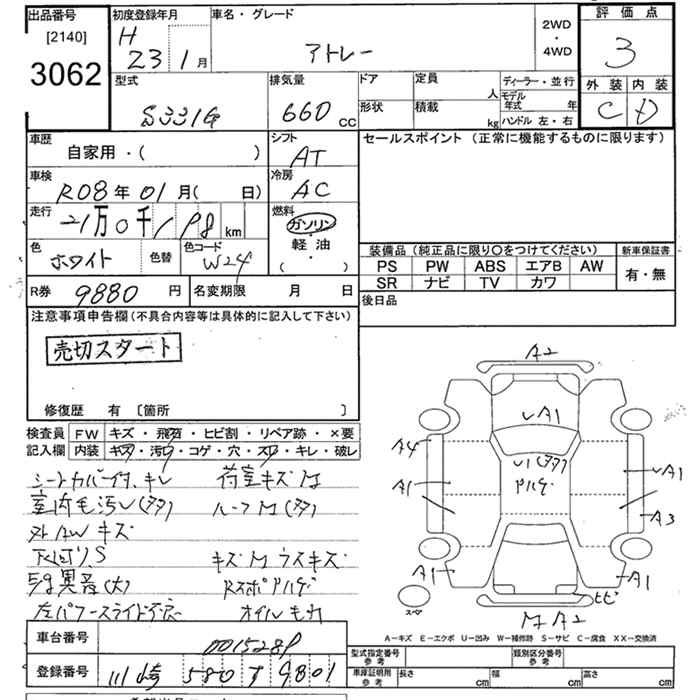 出品番号
[2140]
3062
初度登録年月
H
23 1 月
車名・グレード
アトレー
2WD
・
4WD
評価点
3
外装 内装
C D
型式
S331G
排気量
660 CC
ドア
形状
定員 人
積載 kg
ディーラー・並行
モデル
年式 年
ハンドル 左・右
車歴
自家用・( )
シフト
AT
セールスポイント (正常に機能するものに限ります)
車検
R08年01月( 日)
冷房
AC
走行
21万0千 198 km
燃料
ガソリン
軽油
( )
色
ホワイト
色替
色コード
W24
装備品 (純正品に限り○をつけてください)
新車保証書
PS PW ABS エアB AW
有・無
SR ナビ TV カワ
R券 9880 円
名変期限 月 日
後日品
注意事項申告欄(不具合内容等は具体的に記入して下さい)
売切スタート
修復歴 有 〔箇所 〕
検査員 FW キズ・飛石・ヒビ割・リペア跡・×要
記入欄 内装 キズ・汚レ・コゲ・穴・スレ・キレ・破レ
シートカバー付、キレ 荷室キズM
室内毛汚レ(多) ルーフM(多)
外AWキズ
下回り、S キズMウスキズ
異音(大)
左パワースライド不良 オイルもれ
A2
A1
A4
A1
A1
A3
A1
A1
ヒビ
スペア
M A2
A-キズ E-エクボ U-凹み W-補修跡 S-サビ C-腐食 XX-交換済
車台番号 0015289
型式指定番号
参考
類別区分番号
参考
登録番号 川崎 580 す 9801
車庫証明用
参考
長さ cm 幅 cm 高さ cm